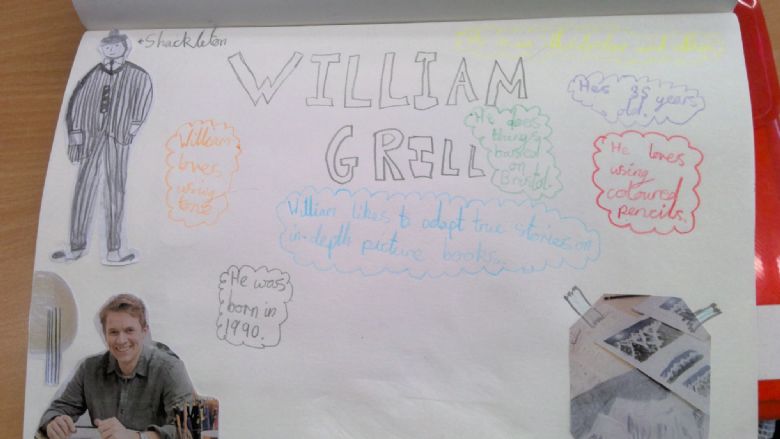 Shackleton
WILLIAM
GRILL
He is an illustrator and
He's 35 years
old.
He does
things
based
on
Bristol.
William
loves
using
tone
He loves
using
coloured
pencils.
William likes to adapt true stories on
in-depth picture books.
He was
born in
1990.